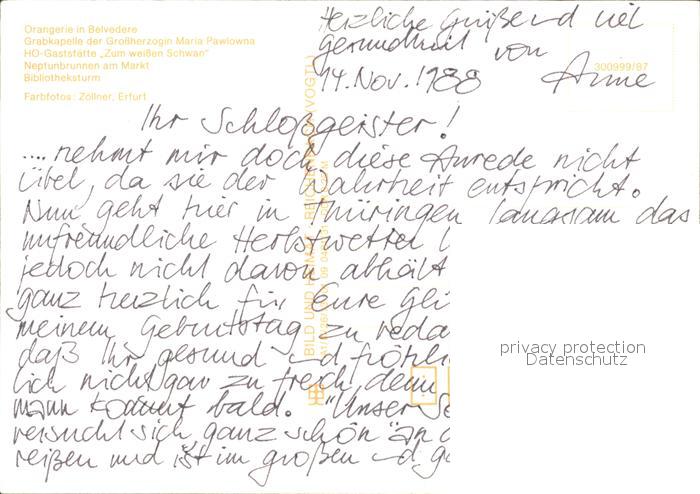 Orangerie in Belvedere
Grabkapelle der Großherzogin Maria Pawlowna
HO-Gaststätte „Zum weißen Schwan"
Neptunbrunnen am Markt
Bibliotheksturm
Farbfotos: Zöllner, Erfurt
Herzliche Grüße und viel
Gesundheit von
14. Nov. 1988 Anne
300999/87
Ihr Schloßgeister!
.... nehmt mir doch diese Anrede nicht
übel, da sie der Wahrheit entspricht.
Nun geht hier in Thüringen langsam das
unfreundliche Herbstwetter l
jedoch nicht davon abhält
ganz herzlich für Eure Glü
meinem Geburtstag zu
daß Ihr gesund und fröhli
lich nicht gar zu frech, denn
mann kommt bald. "Unser
versucht sich ganz schön
reißen und ist im großen und g
BILD UND HEIMAT REICHENBACH (VOGTL)
privacy protection
Datenschutz